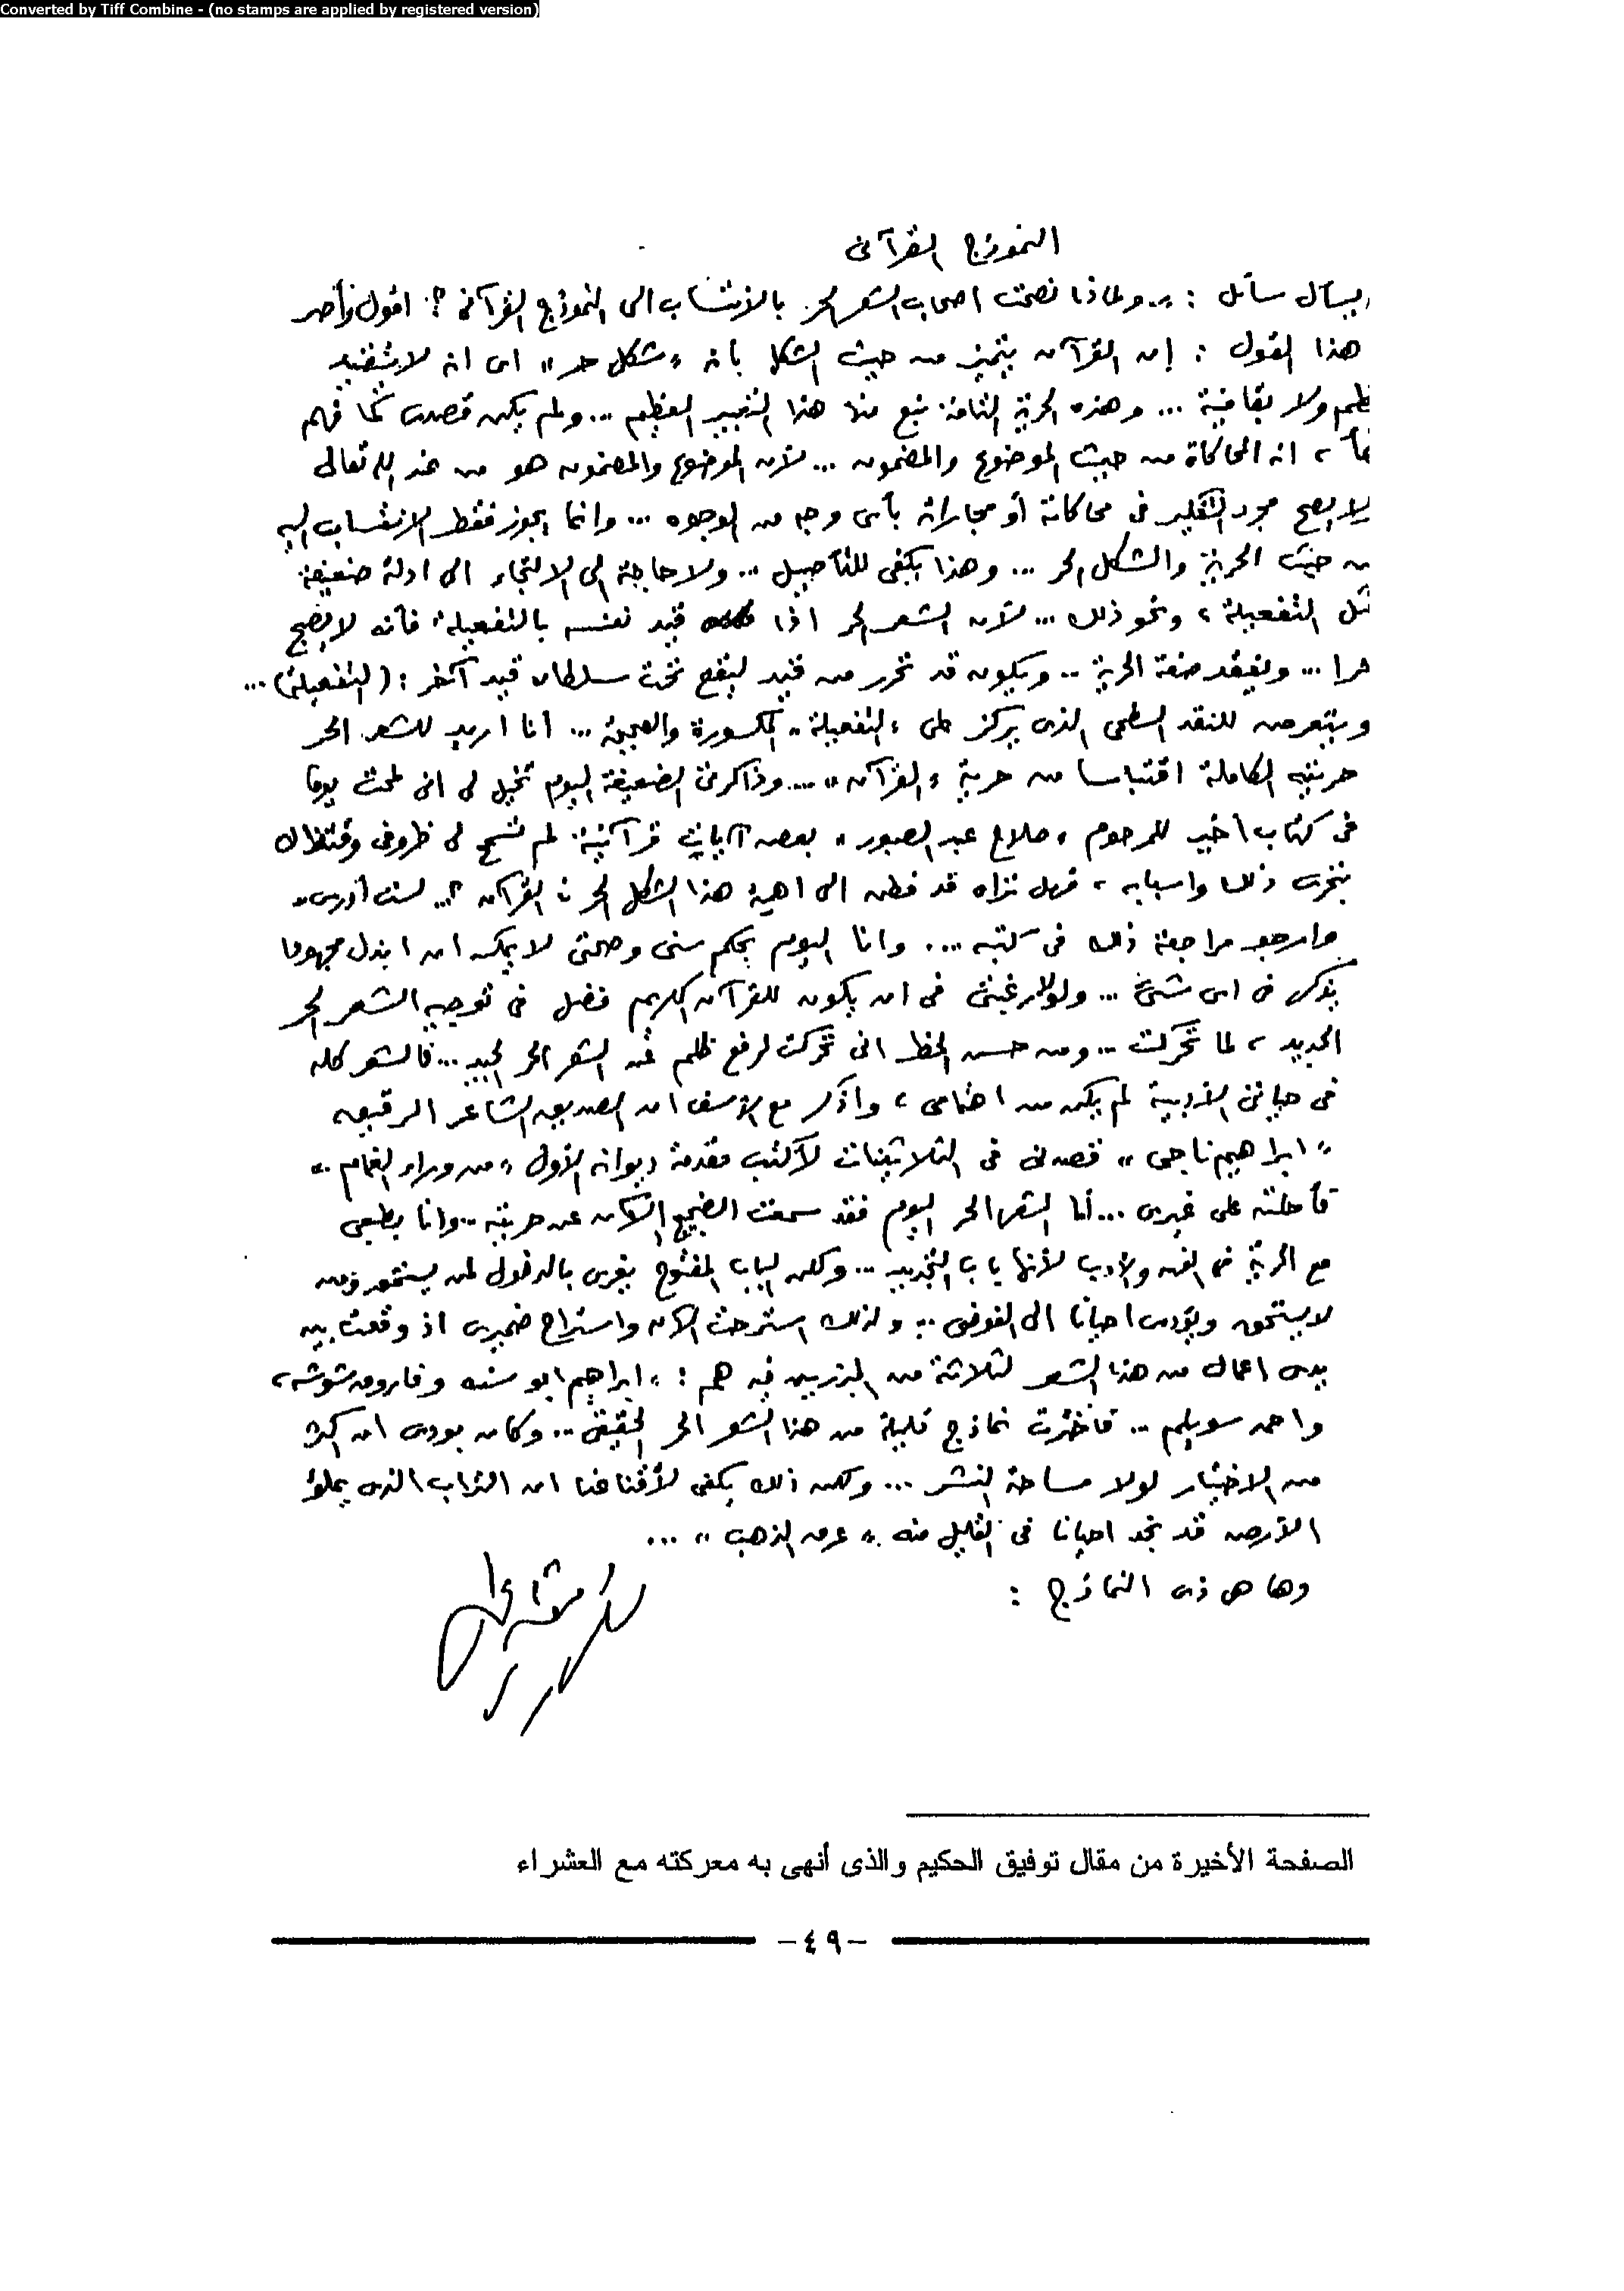 Converted by Tiff Combine - (no stamps are applied by registered version)
النموذج القرآنى
يسأل سائل : .. ولماذا نصحت اصحاب الشعر الحر بالانتساب الى النموذج القرآنى ؟. اقول
هذا القول : إن القرآن يتميز من حيث الشكل بأنه « شكل حر » اى انه لا يتقيد
ولا بقافية ... وهذه الحرية التامة نبع منها هذا التعبير العظيم ... ولم يكن قصدى كما فهم
، انه المحاكاة من حيث الموضوع والمضمون ... لأن الموضوع والمضمون هو من عند الله تعالى
لا يصح مجرد التفكير فى محاكاته أو مجاراته بأى وجه من الوجوه ... وانما يجوز فقط الانتساب اليه
من حيث الحرية والشكل الحر ... وهذا يكفى للتأصيل ... ولا حاجة الى الالتجاء الى ادلة ضعيفة
التفعيلة ، ونحو ذلك ... لأن الشعر الحر اذا قيد نفسه بالتفعيلة ، فأنه لا يصبح
حرا ... ويفقد صفة الحرية .. ويكون قد تحرر من قيد ليقع تحت سلطان قيد آخر : ( التفعيلة ) ...
ويتعرض للنقد السطحى الذى يركز على « التفعيلة » المكسورة والصحيحة ... أنا اريد للشعر الحر
حريته الكاملة اقتباسا من حرية « القرآن » ... وذاكرتى الضعيفة اليوم تخيل لى انى لمحت يوما
فى كتاب أخير للمرحوم « صلاح عبد الصبور » بعض آيات قرآنية لم تسمح لى ظروفى وقتذاك
بتحرى ذلك واسبابه ، فهل تراه قد فطن الى اهمية هذا الشكل الحر فى القرآن ؟.. لست أدرى ..
وارجو مراجعة ذلك فى كتبه ... وانا اليوم بحكم سنى وصحتى لا يمكن ان ابذل مجهودا
يذكر فى اى شئ ... ولولا رغبتى فى ان يكون للقرآن الكريم فضل فى توجيه الشعر الحر
الجديد ، لما تحركت ... ومن حسن الحظ انى تحركت لرفع ظلم عن الشعر الحر الجيد ... فالشعر كله
فى حياتى الأدبية لم يكن من اهتمامى ، واذكر مع الأسف ان الصديق الشاعر الرقيق
« ابراهيم ناجى » قصدنى فى الثلاثينات لأكتب مقدمة ديوانه الأول « من وراء الغمام »
فأحلته على غيرى ... أما الشعر الحر اليوم فقد سمعت الضجيج الآن عن حريته .. وانا بطبعى
مع الحرية فى الفن والأدب لأنها باب التجديد ... ولكن الباب المفتوح يغرى بالدخول لمن يستحق ومن
لا يستحق ويؤدى احيانا الى الفوضى .. ولذلك استرحت الآن واستراح ضميرى اذ وقعت بين
يدى اعمال من هذا الشعر لثلاثة من البارزين فيه هم : « ابراهيم ابو سنه وفاروق شوشه ،
واحمد سويلم .. فاخترت نماذج قليلة من هذا الشعر الحر الحقيقى .. وكان بودى ان اكثر
من الاختيار لولا مساحة النشر ... ولكن ذلك يكفى لأقناعنا ان التراب الذى يملؤ
الأرض قد نجد احيانا فى القليل منه « عرق الذهب » ...
وها هى ذى النماذج :
الصفحة الأخيرة من مقال توفيق الحكيم والذى أنهى به معركته مع العشراء
- ٤٩ -